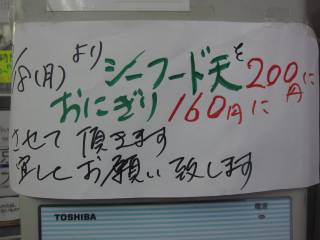 /8(月)より
シーフード天を200円に
おにぎり160円に
させて頂きます
宜しくお願い致します
TOSHIBA